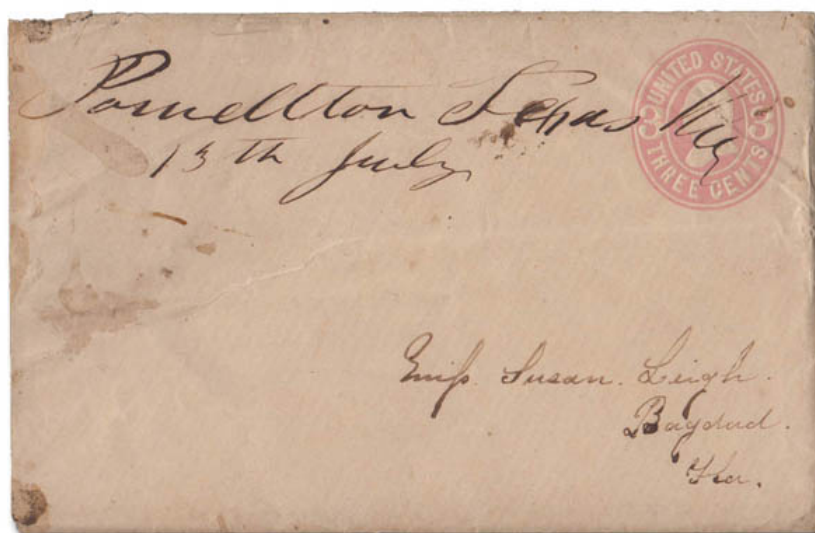 Powellton Texas
13th July
UNITED STATES
3 3
THREE CENTS
Miss. Susan. Leigh.
Bagdad.
Fla.